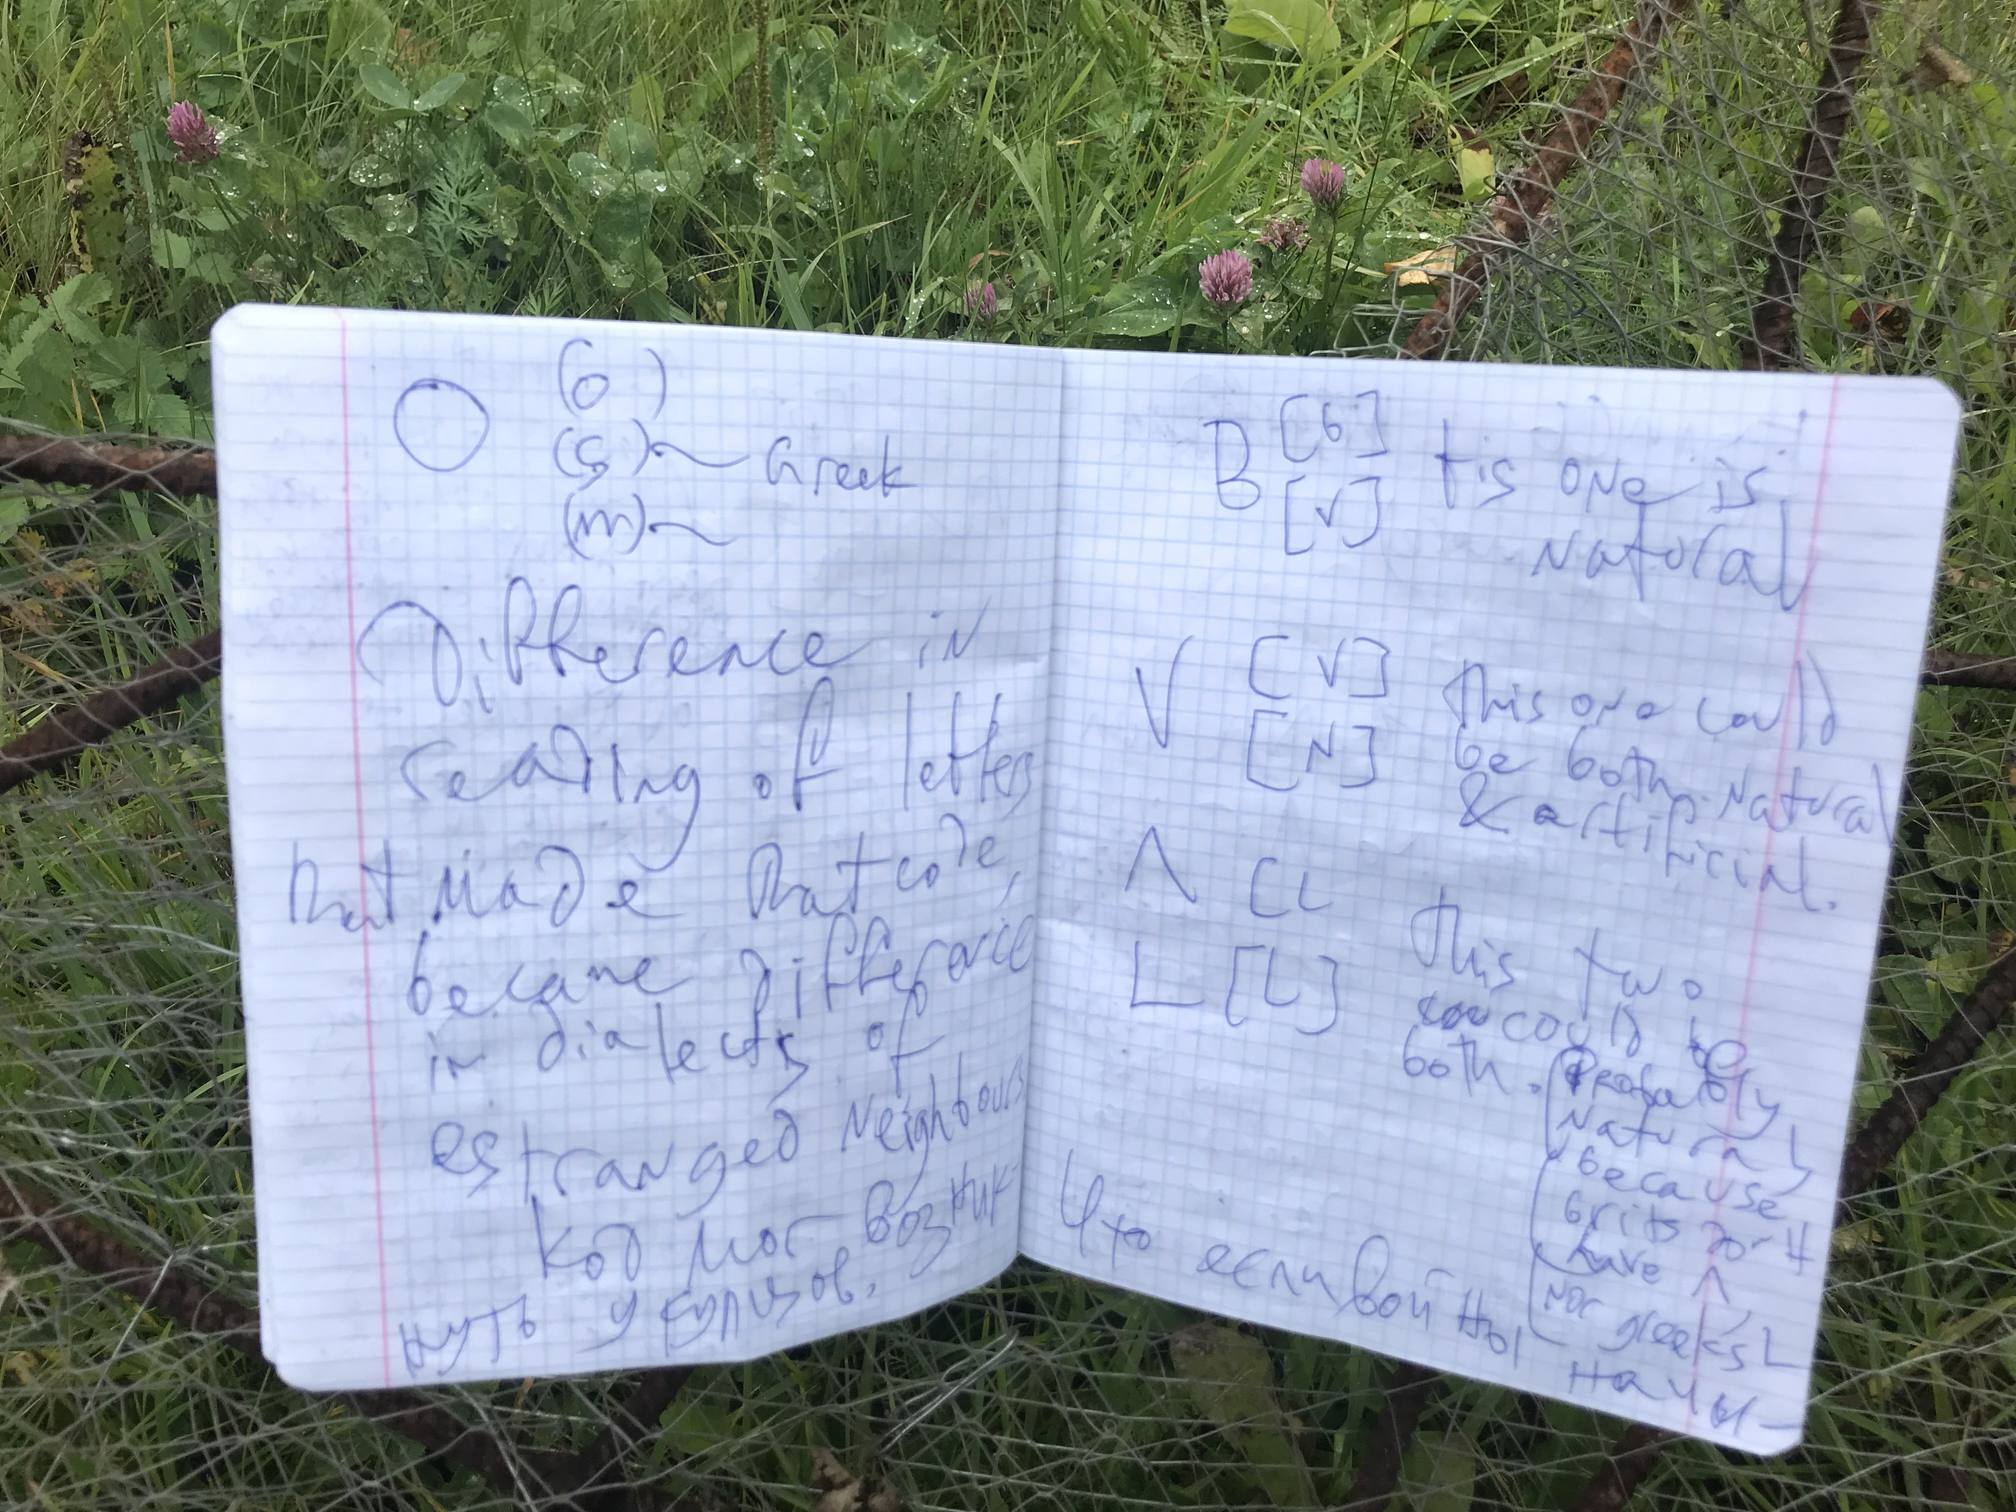 (б)
(ş) ~ Greek
(m) ~
Difference in
reading of letters
that made that code,
became difference
in dialects of
estranged neighbours
код мог возник-
нуть у
B [б] tis one is
[V] natural
V [V] This one could
[N] be both natural
& artificial.
Λ [L
L [L] This two
could be
both. Probably
natural
because
brits don't
have Λ,
nor greeks L
Что если войны
начи-